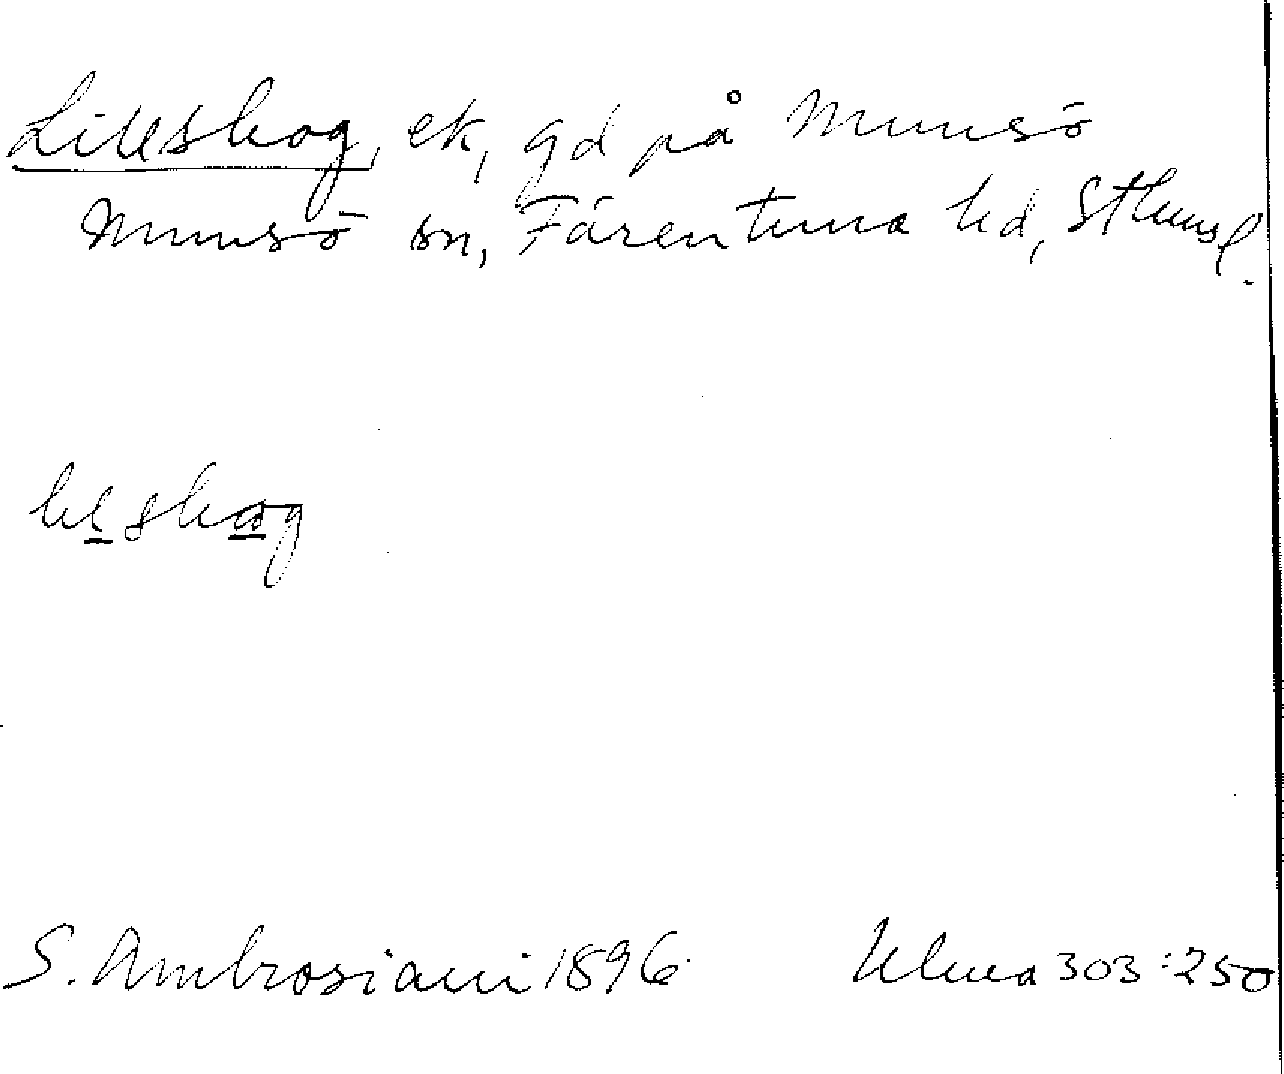 Lilleskog, ek, gd på Munsö
Munsö sn, Färentuna hd, Sthmsl.
S. Ambrosiani 1896. Ulma 303:250